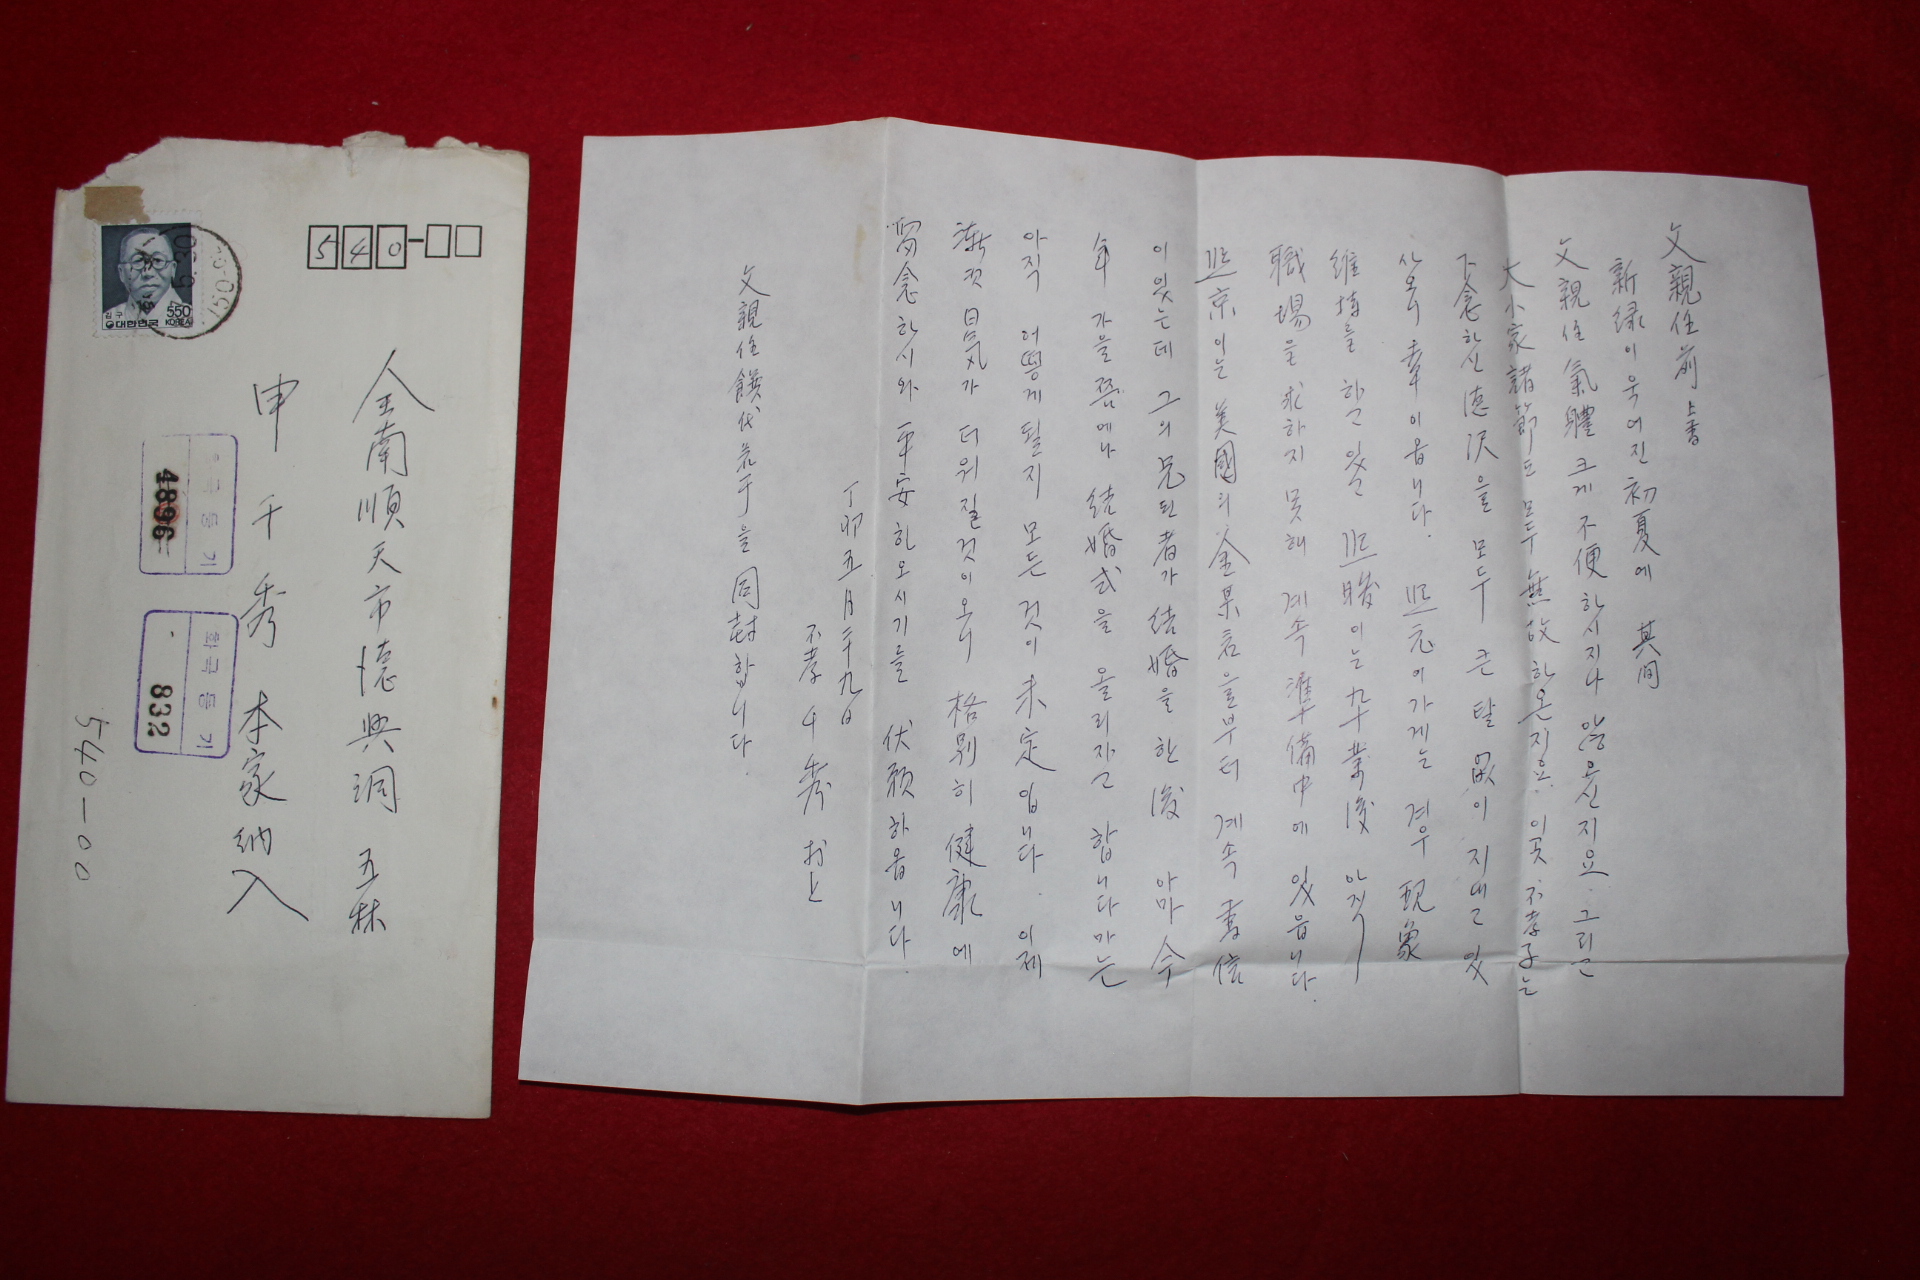 540-
김구
550
대한민국 KOREA
全南順天市德興洞 五林
申千秀 本家納入
540-00
등기
4896
등기
832
父親任前 上書
新綠이 욱어진 初夏에 其間
父親任 氣體 크게 不便하시지나 않으신지요. 그리고
大小家諸節도 모두 無故하온지요. 이곳 不孝子는
下念하신 德沢을 모두 큰 탈 없이 지내고 있
사오니 幸이옵니다. 元이가게는 겨우 現象
維持를 하고 있고 이는 卒業後 아직
職場을 求하지 못해 계속 準備中에 있읍니다.
京이는 美國의 金某君을부터 계속 書信
이 있는데 그의 兄된 者가 結婚을 한 後 아마 今
年 가을쯤에나 結婚式을 올리자고 합니다마는
아직 어떻게 될지 모든 것이 未定입니다. 이제
漸次 日氣가 더워질 것이오니 格別히 健康에
留念하시와 平安하오시기를 伏願하옵니다.
丁卯五月二十九日
不孝 千秀 上
父親任 을 同封합니다.